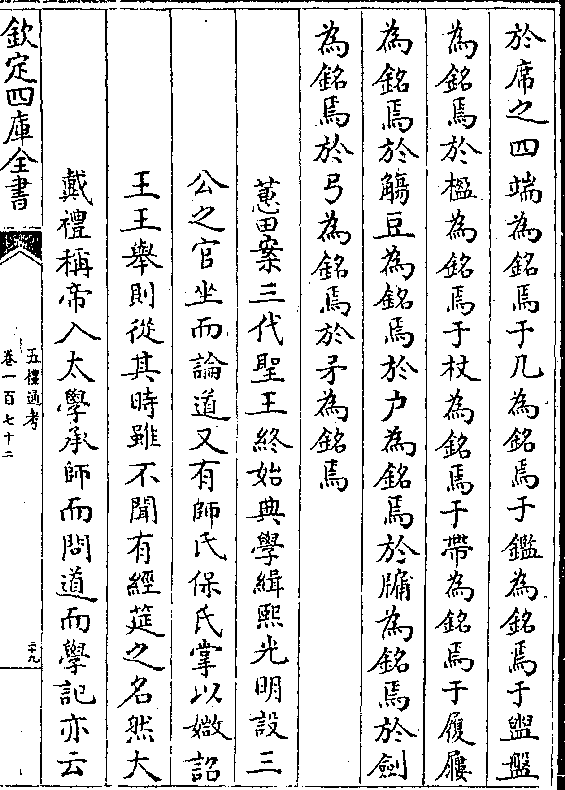 於席之四端為銘焉于几為銘焉于鑑為銘焉于盥盤
為銘焉於楹為銘焉于杖為銘焉于帶為銘焉于履屨
為銘焉於觴豆為銘焉於户為銘焉於牖為銘焉於劍
為銘焉於弓為銘焉於矛為銘焉
蕙田案三代聖王終始典學緝熙光明設三
公之官坐而論道又有師氏保氏掌以媺詔
王王舉則從其時雖不聞有經筵之名然大
戴禮稱帝入太學承師而問道而學記亦云
欽定四庫全書
五禮通考
卷一百七十二
二十九